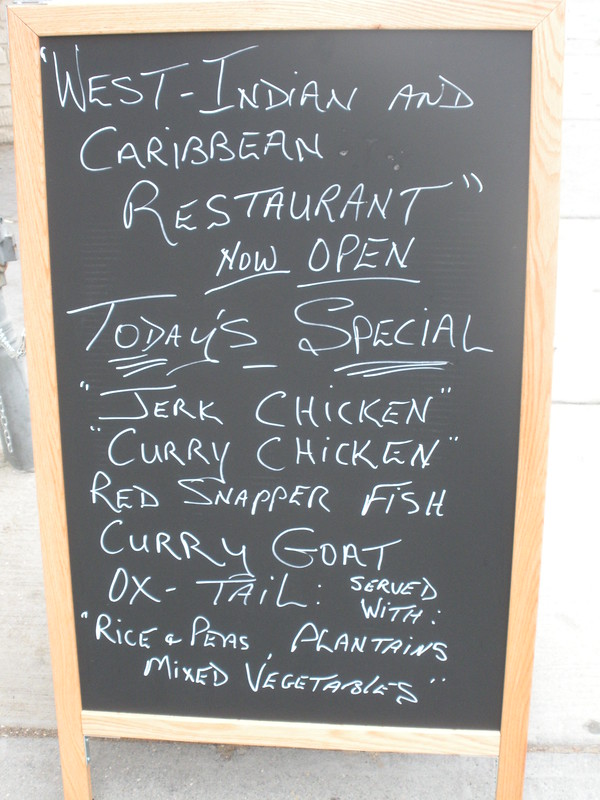 "WEST-INDIAN AND
CARIBBEAN
RESTAURANT"
NOW OPEN
TODAY'S SPECIAL
"JERK CHICKEN"
"CURRY CHICKEN"
RED SNAPPER FISH
CURRY GOAT
OX-TAIL: SERVED
WITH:
"RICE & PEAS, PLANTAINS
MIXED VEGETABLES"